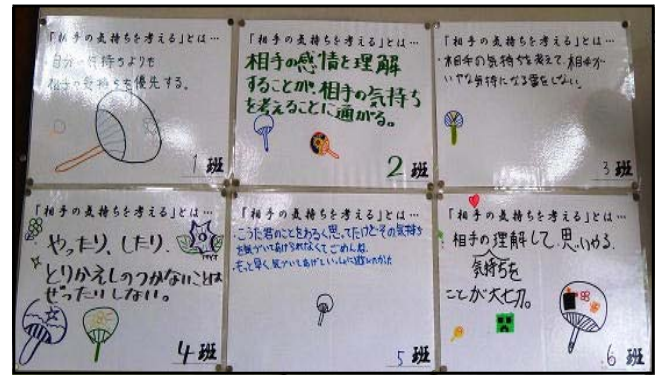 「相手の気持ちを考える」とは…
・自分の気持ちよりも
相手の気持ちを優先する。
1班
「相手の気持ちを考える」とは…
相手の感情を理解
することが、相手の気持ち
を考えることに通がる。
2班
「相手の気持ちを考える」とは…
・相手の気持ちを考えて、相手が
いやな気持になる事をしない。
3班
「相手の気持ちを考える」とは…
やったり、したり、
とりかえしのつかないことは
ぜったいしない。
4班
「相手の気持ちを考える」とは…
・こうた君のことをわるく思ってたけどその気持ち
を気づいてあげられなくてごめんね。
・もっと早く気づいてあげて
5班
「相手の気持ちを考える」とは…
相手の理解して、思いやる
気持ちを
ことが大切。
6班